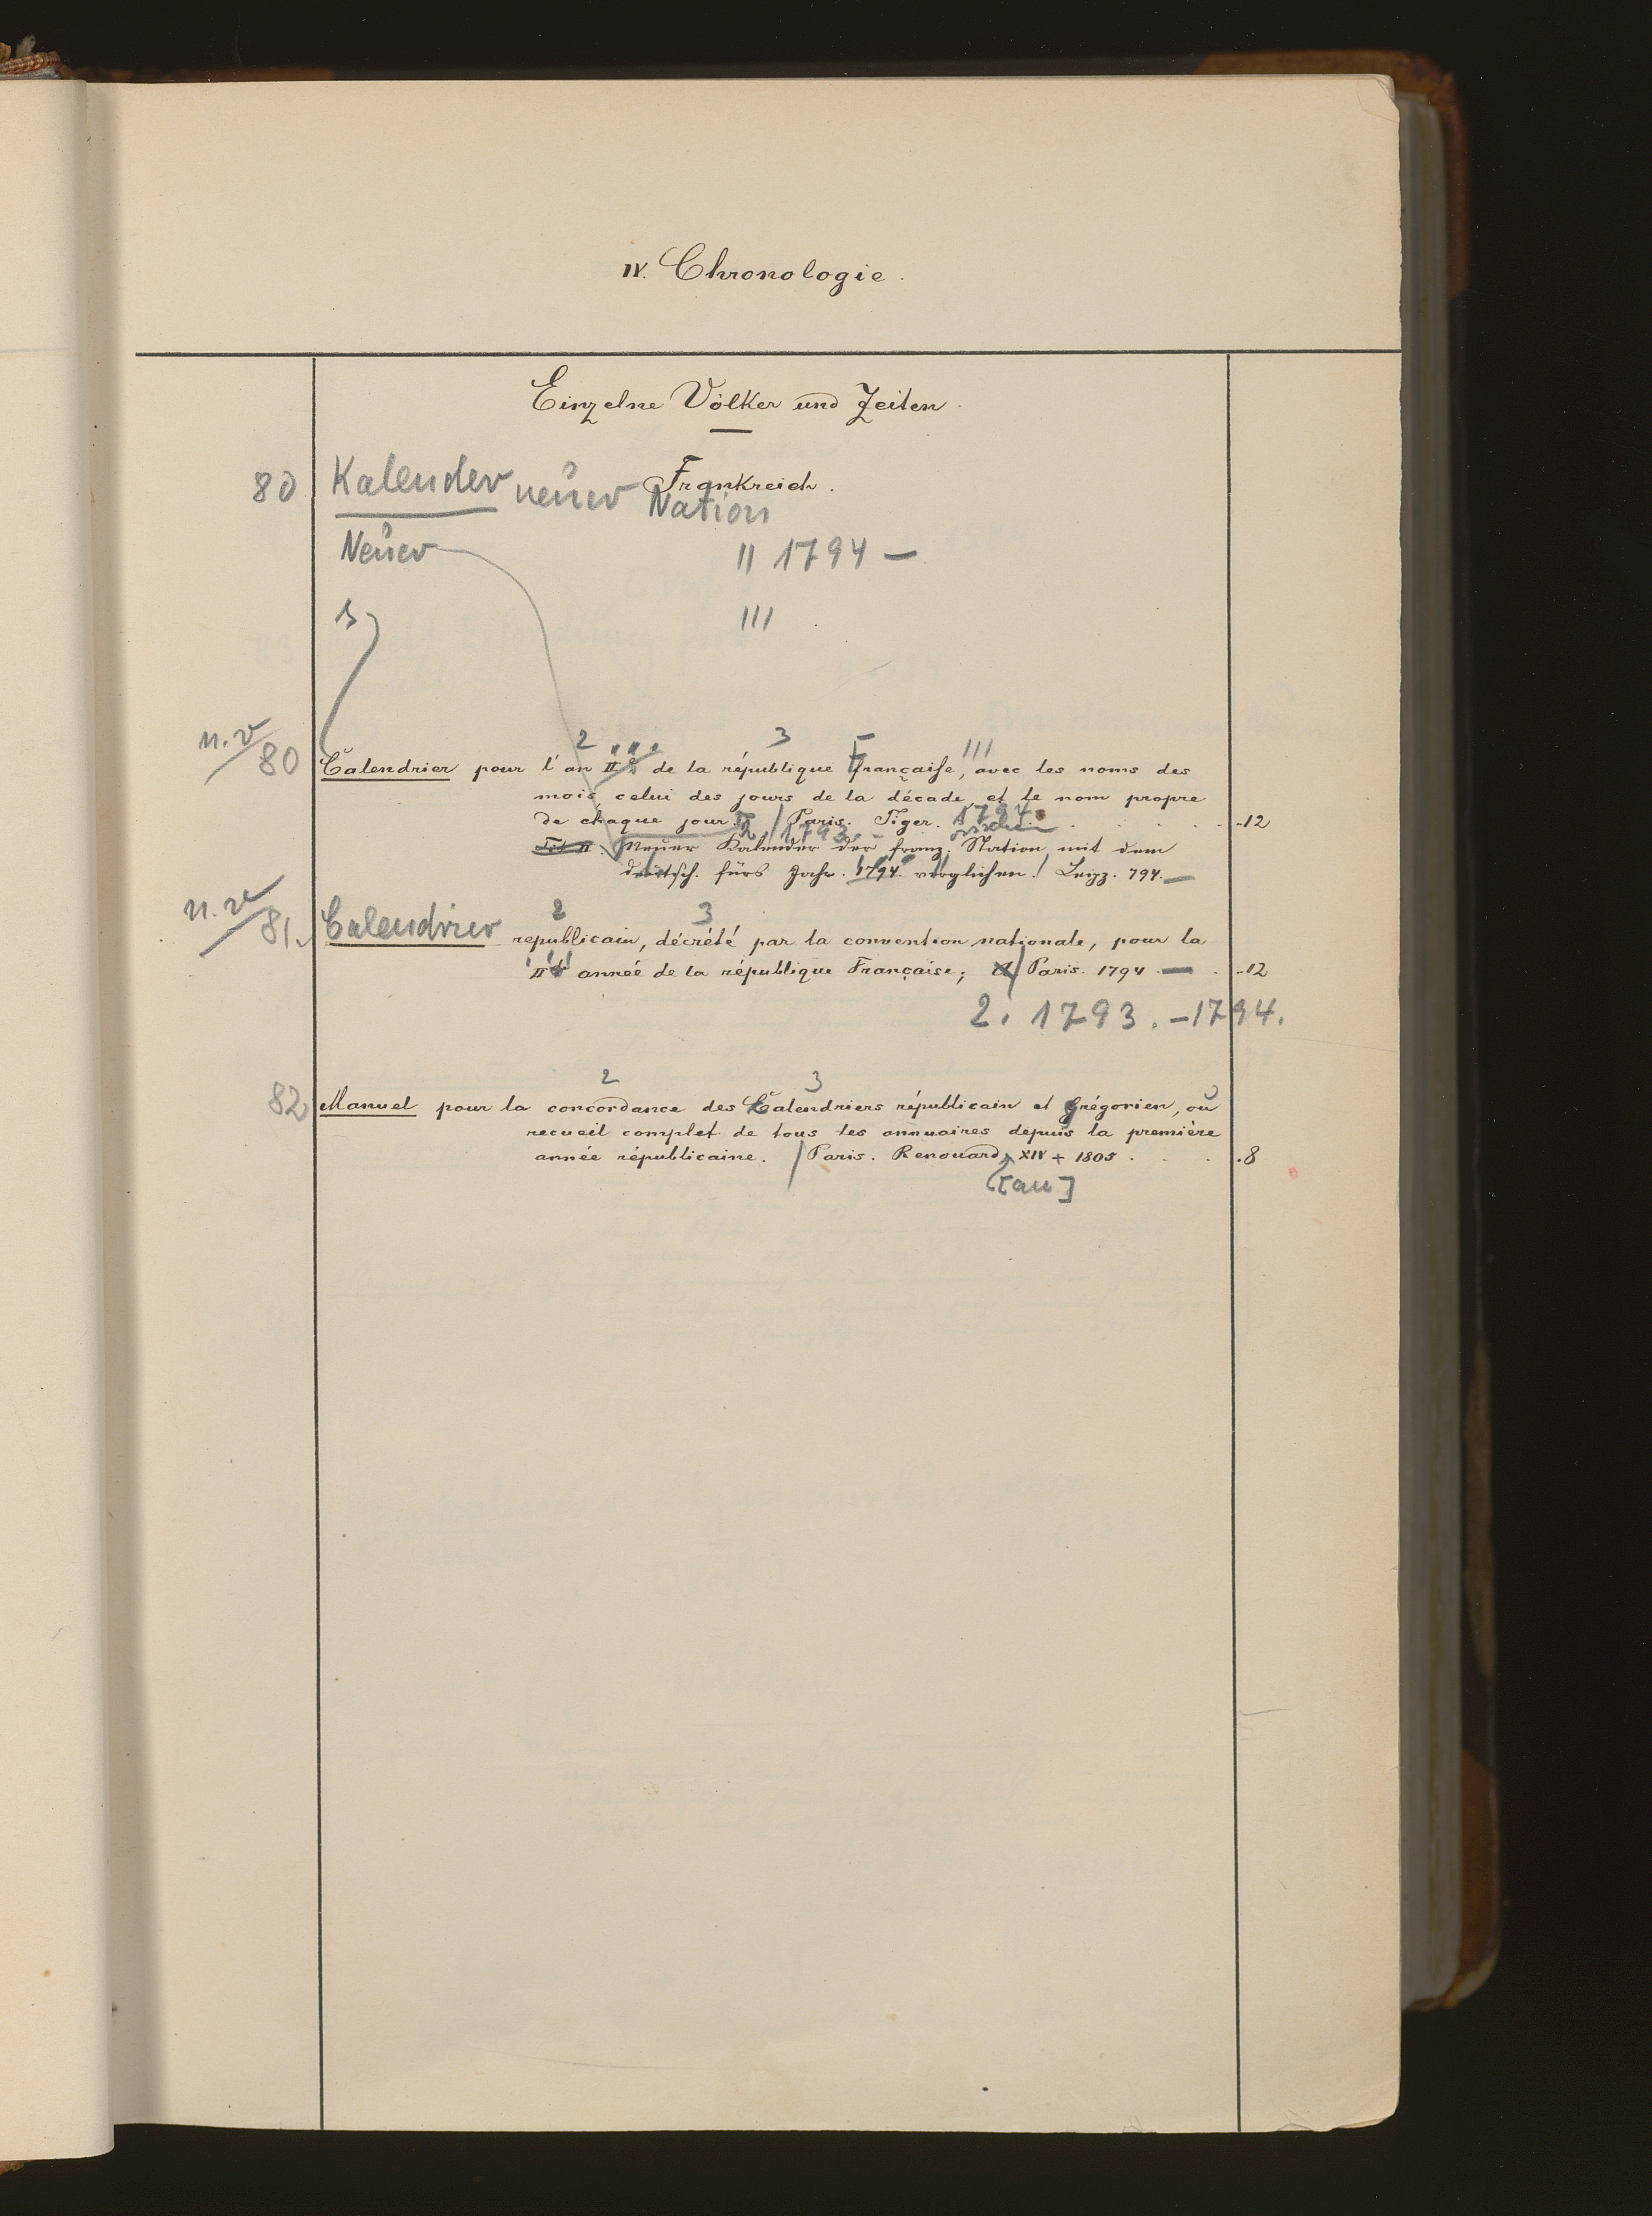 IV. Chronologie.
Einzelne Völker und Zeiten.
Frankreich.
80 Kalender neuer Nation
Neuer II 1794 —
III
n. v
2 3 F III
80 Calendrier pour l'an II de la république française, avec les noms des
mois, celui des jours de la décade, et le nom propre
de chaque jour. Paris. Tiger. 1794. 12
2 1793. -
Neuer Kalender der franz. Nation mit dem
deutsch. fürs Jahr. 1794. verglichen. Leipz. 794. —
n. v
2 3
81. Calendrier republicain, décrété par la convention nationale, pour la
II année de la république Française; Paris. 1794 — 12
2. 1793. - 1794.
2 3
82 Manuel pour la concordance des Calendriers républicain et Grégorien, ou
recueil complet de tous les annuaires depuis la première
année républicaine. / Paris. Renouard, XIV + 1805 . . . 8
[au]